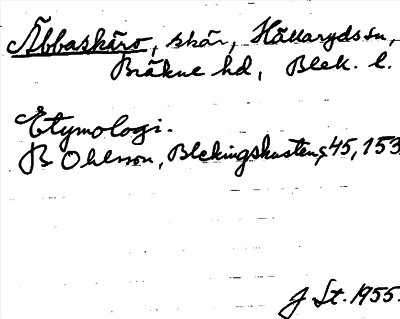 Abbaskäro, skär, Hällaryds sn,
Bräkne hd, Blek. l.
Etymologi.
B Ohlsson, Blekingskusten, 45, 153.
J St. 1955.